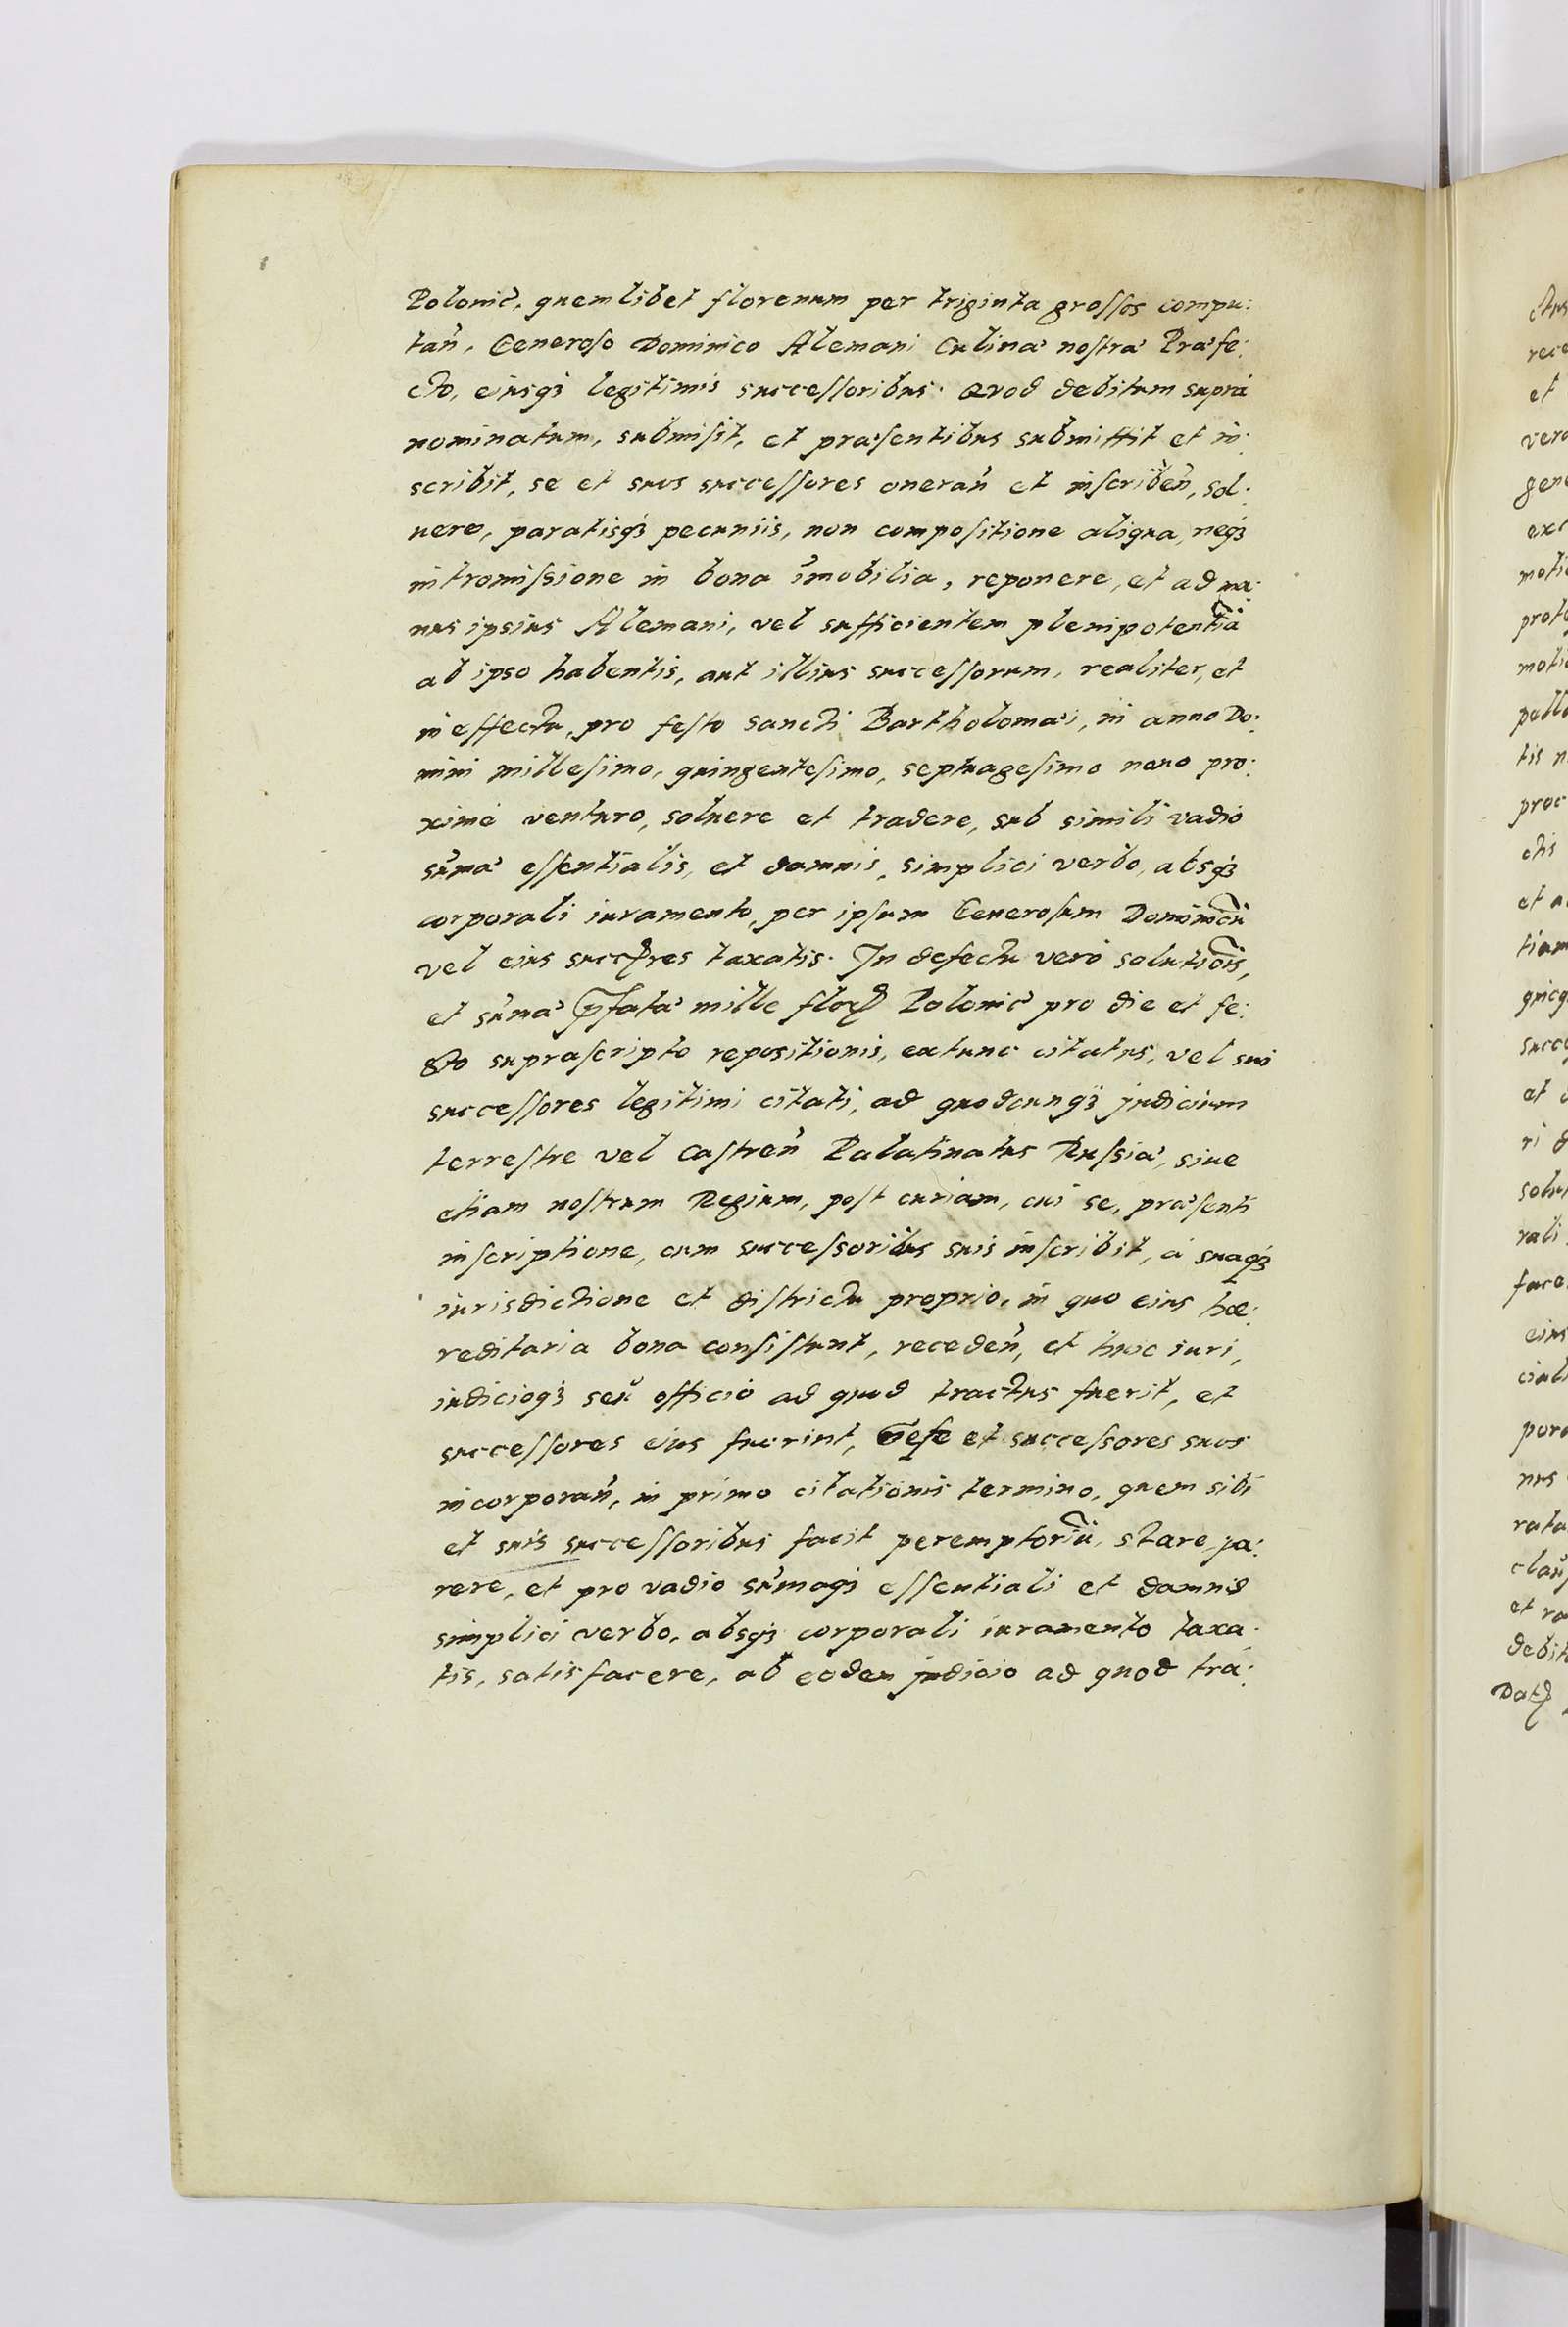 Polonic̃, quemlibet florenum per triginta grossos compu:
tan̄, Generoso Dominico Alemani Culinæ nostræ Præfe:
cto, eiusq₃ legitimis successoribus. Quod debitum suprà
nominatum, submisit, et præsentibus submittit et in:
scribit, se et suos successores oneran̄ et inscriben̄, sol:
uere, paratisq₃ pecuniis, non compositione aliqua, neq₃
intromissione in bona im̄obilia, reponere, et ad ma:
nus ipsius Alemani, vel sufficientem plenipotentiã
ab ipso habentis, aut illius successorum, realiter, et
in effectu, pro festo sancti Bartholomæi, in anno Do:
mini millesimo, quingentesimo, septuagesimo nono pro:
ximè venturo, soluere et tradere, sub simili vadio
sum̄æ essentialis, et damnis, simplici verbo, absq₃
corporali iuramento, per ipsum Generosum Dominicũ
vel eius succ̃res taxatis. In defectu verò solutiõis,
et sum̄æ p̃fatæ mille floꝝ Polonic̃ pro die et fe:
sto suprascripto repositionis, extunc citatus, vel sui
successores legitimi citati, ad quodcunq₃ judicium
terrestre vel Castren̄ Palatinatus Russiæ, siue
etiam nostrum Regium, post curiam, cui se, præsenti
inscriptione, cum successoribus suis inscribit, à suaq₃
iurisdictione et districtu proprio, in quo eius hæ:
reditaria bona consistunt, receden̄, et huic iuri,
iudicioq₃ seu officio ad quod tractus fuerit, et
successores eius fuerint, sese et successores suos
incorporan̄, in primo citationis termino, quem sibi
et suis successoribus facit peremptoriũ, stare, pa:
rere, et pro vadio sum̄aq₃ essentiali et damnis
simplici verbo, absq₃ corporali iuramento taxa:
tis, satisfacere, ab eodem judicio ad quod tra: